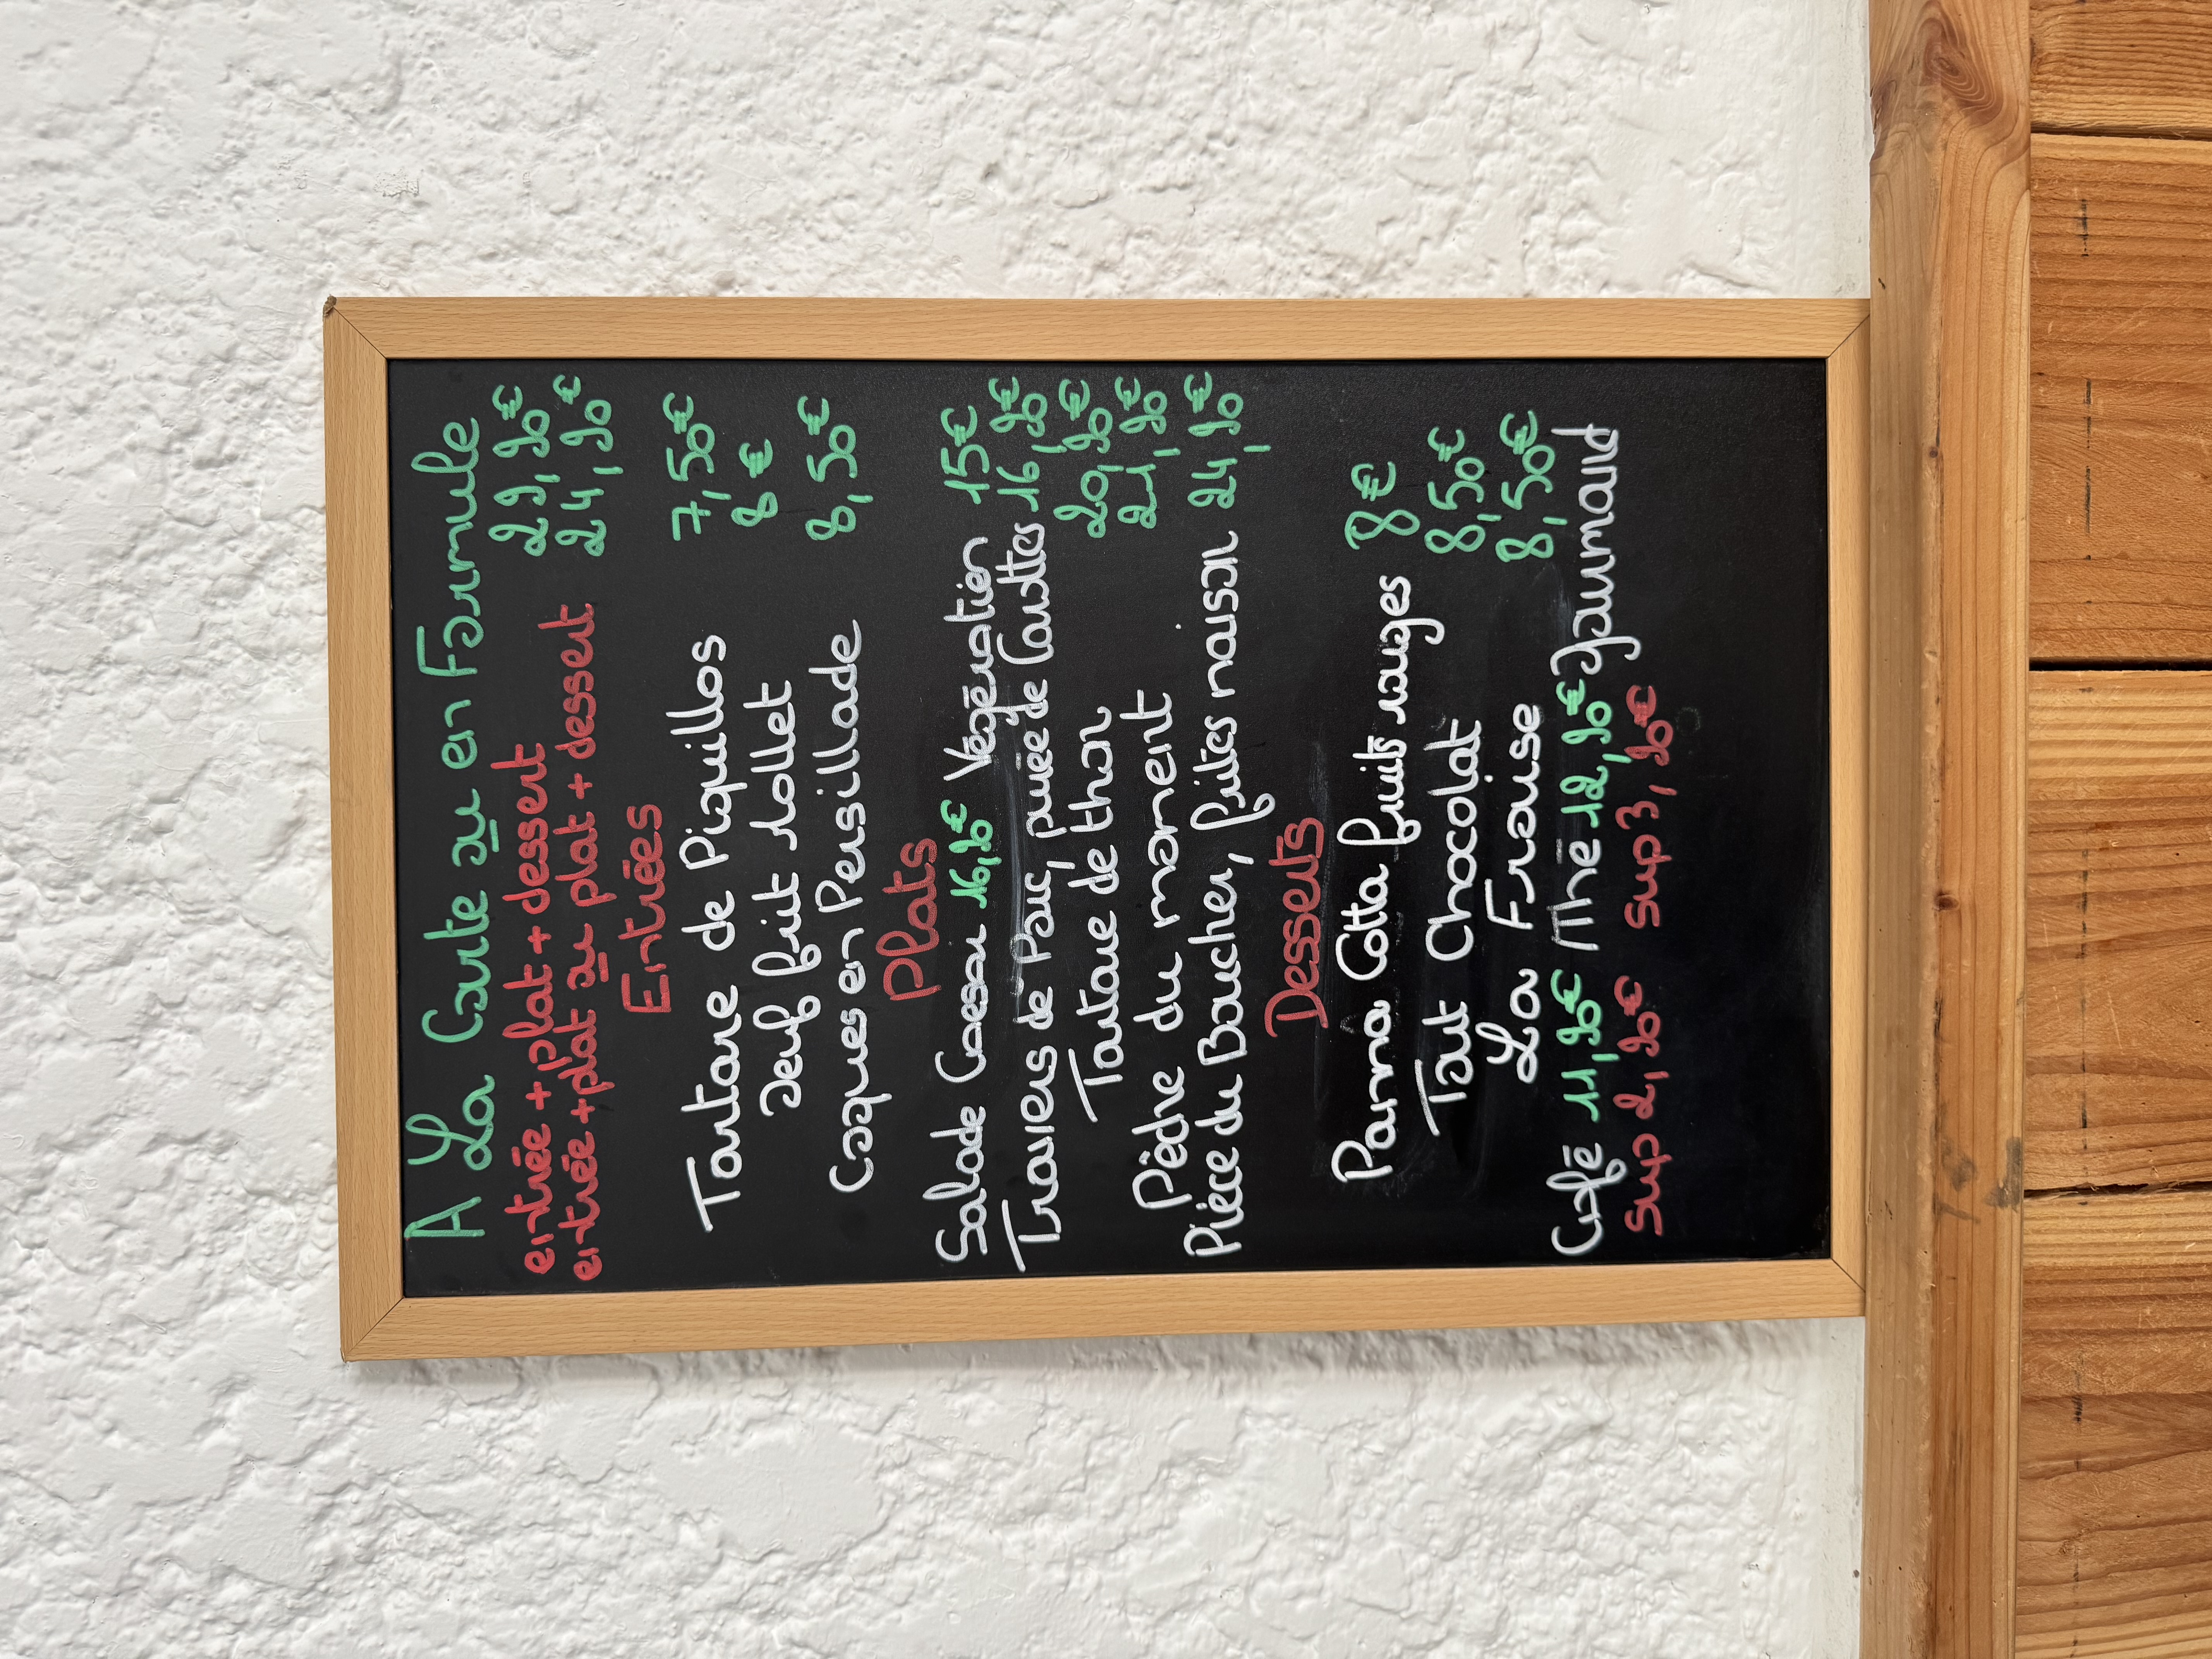 A La Carte ou en Formule
entrée + plat + dessert 29,90€
entrée + plat ou plat + dessert 24,90€
Entrées
Tartare de Piquillos 7,50€
oeuf frit rollet 8€
Coques en Persillade 8,50€
Plats
Salade Coesar 16,90€ Végératien 15€
Travers de Porc, purée de Carottes 16,90€
Tartare de thon 20,90€
Pêche du moment 21,90€
Pièce du Boucher, frites maison 24,90€
Desserts
Panna Cotta fruits rouges 8€
Tout Chocolat 8,50€
La Fraise 8,50€
Café 11,90€ / Thé 12,90€ Gourmand
Sup 2,90€ Sup 3,90€